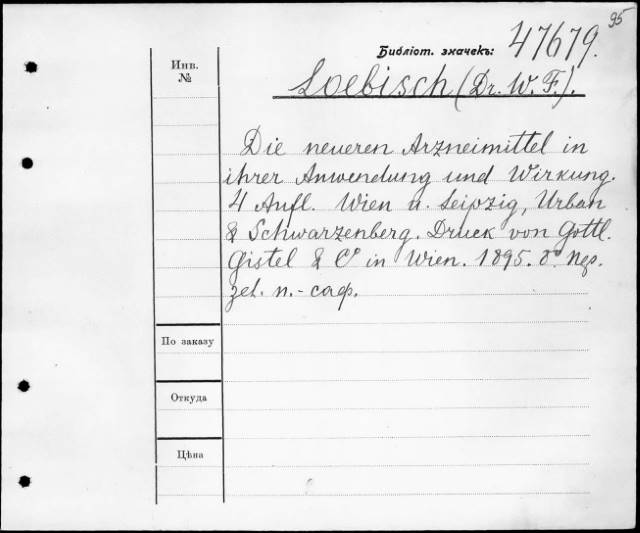 95
Библіот. значекъ: 47679.
Инв.
№
Loebisch (Dr. W. F.).
Die neueren Arzneimittel in
ihrer Anwendung und Wirkung.
4 Aufl. Wien u. Leipzig, Urban
& Schwarzenberg. Druck von Gottl.
Gistel & Cº in Wien. 1895. 8º. Пер.
zel. п.-саф.
По заказу
Откуда
Цѣна